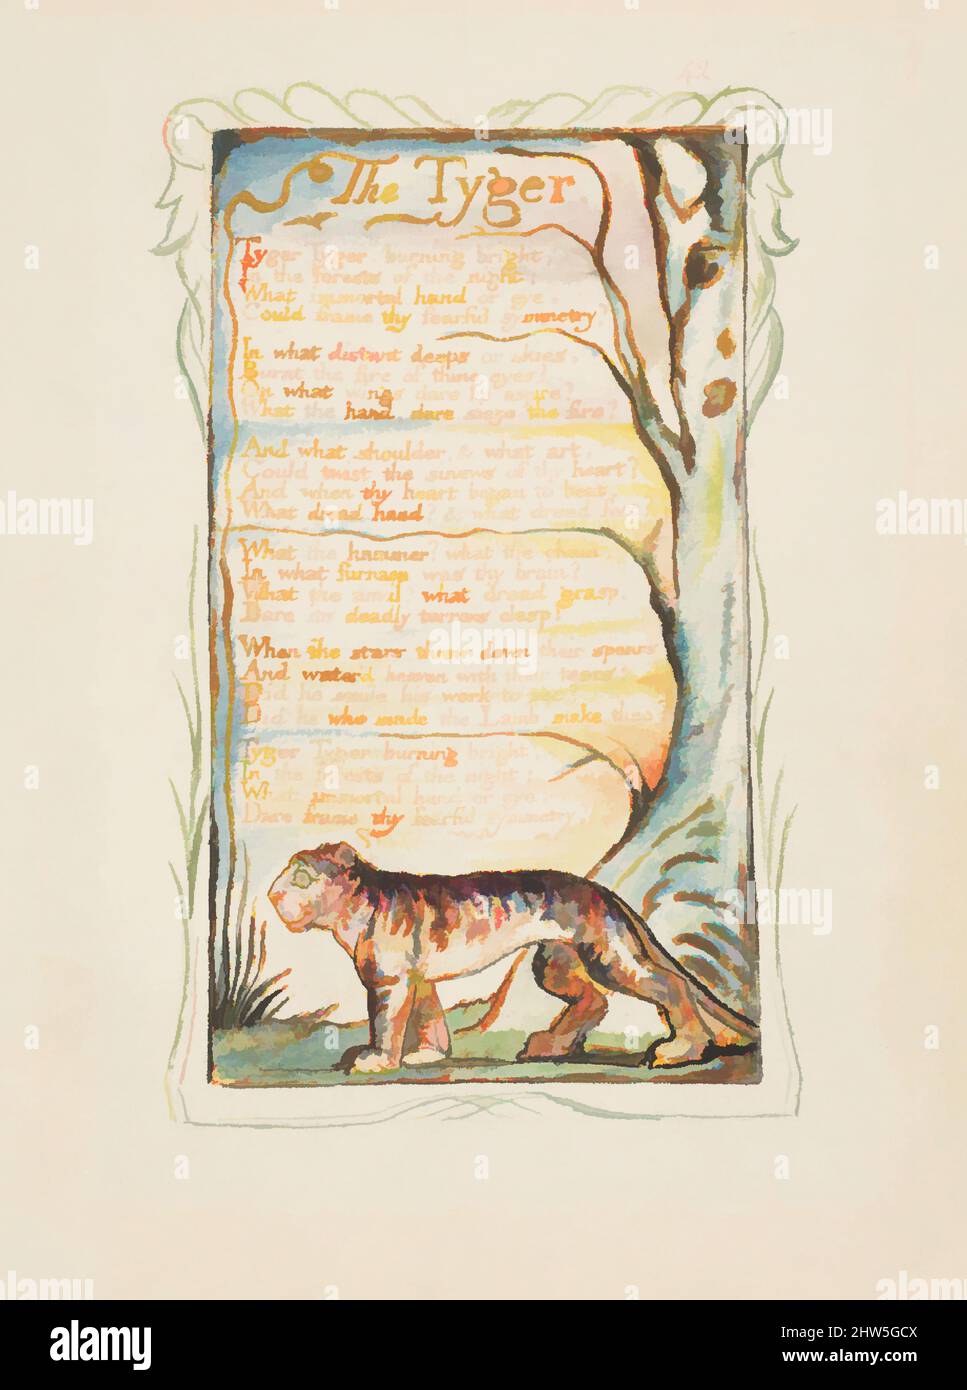 42
The Tyger
Tyger Tyger burning bright,
In the forests of the night;
What immortal hand or eye,
Could frame thy fearful symmetry?
In what distant deeps or skies,
Burnt the fire of thine eyes?
On what wings dare he aspire?
What the hand dare sieze the fire?
And what shoulder, & what art,
Could twist the sinews of thy heart?
And when thy heart began to beat,
What dread hand? & what dread feet?
What the hammer? what the chain,
In what furnace was thy brain?
What the anvil, what dread grasp,
Dare its deadly terrors clasp!
When the stars threw down their spears
And water'd heaven with their tears:
Did he smile his work to see?
Did he who made the Lamb make thee?
Tyger Tyger burning bright,
In the forests of the night:
What immortal hand or eye,
Dare frame thy fearful symmetry,
alamy
alamy
Image ID: 2HW5GCX
www.alamy.com